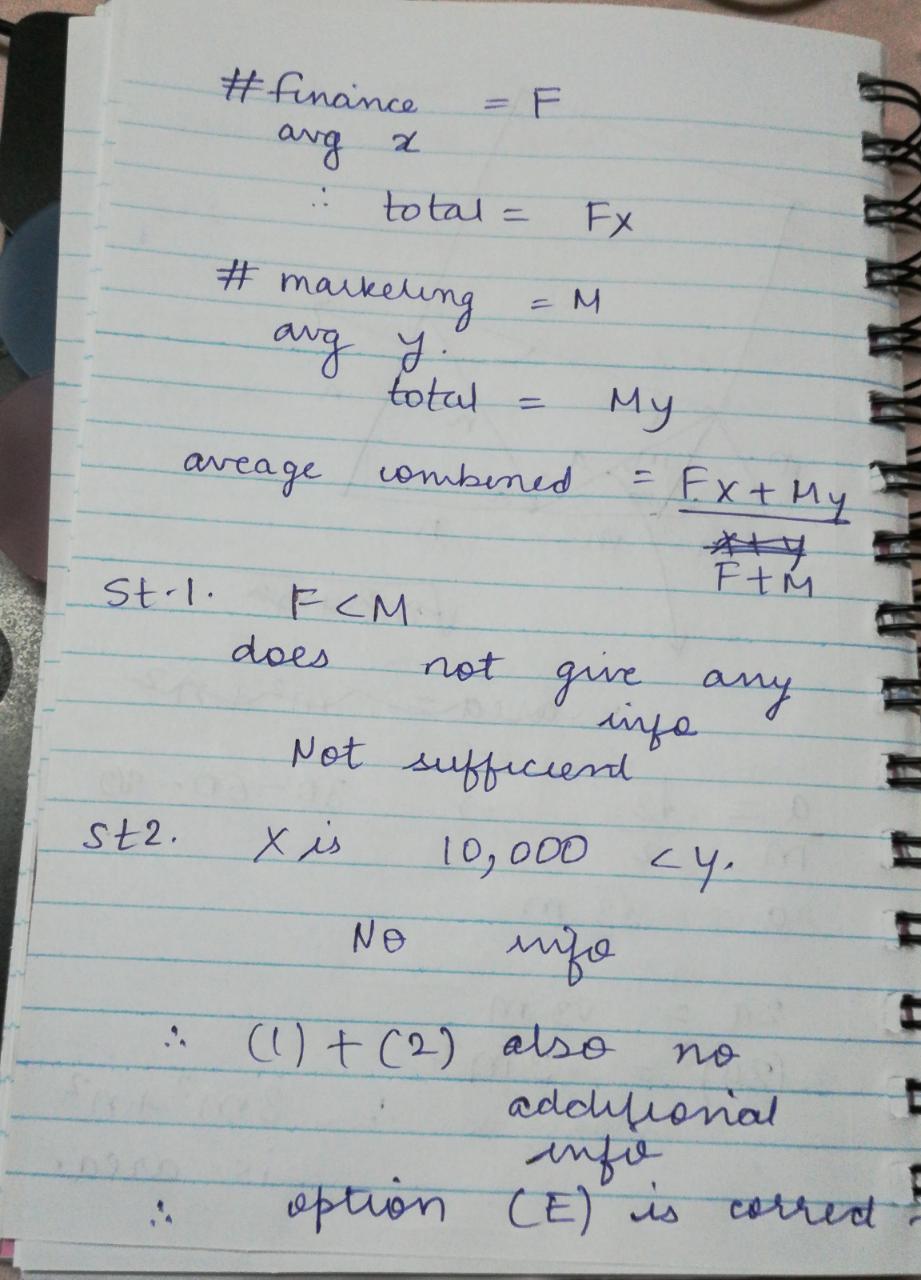 # finance = F
avg x
∴ total = Fx
# marketing = M
avg y.
total = My
aveage combined = Fx + My
x+y
F+M
St-1. F < M
does not give any
info
Not sufficient
St2. X is 10,000 < y.
No info
∴ (1) + (2) also no
additional
info
∴ option (E) is correct.